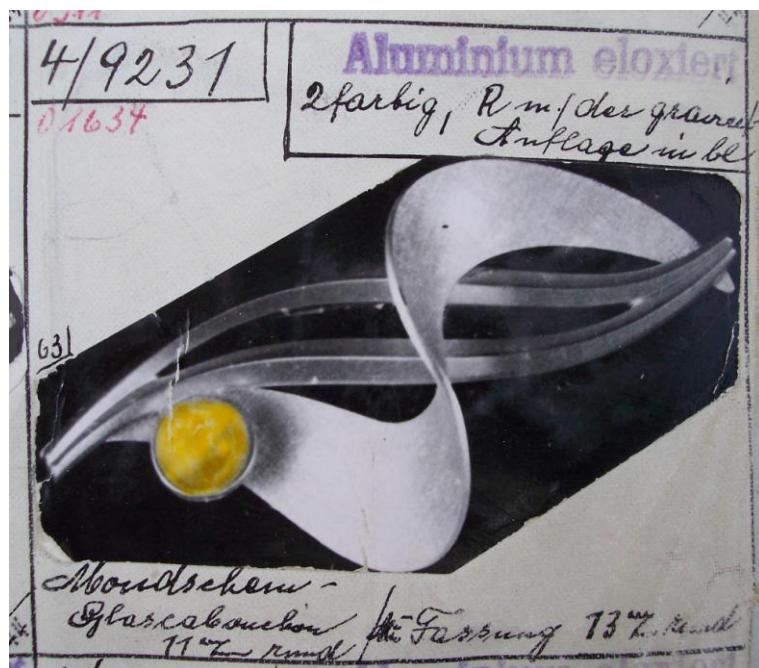 4/9231
01634
Aluminium eloxiert
2farbig, R m/der
Auflage in bl
63
Mondschein-
Glascabouchon
11 rund
Fassung 13 rund